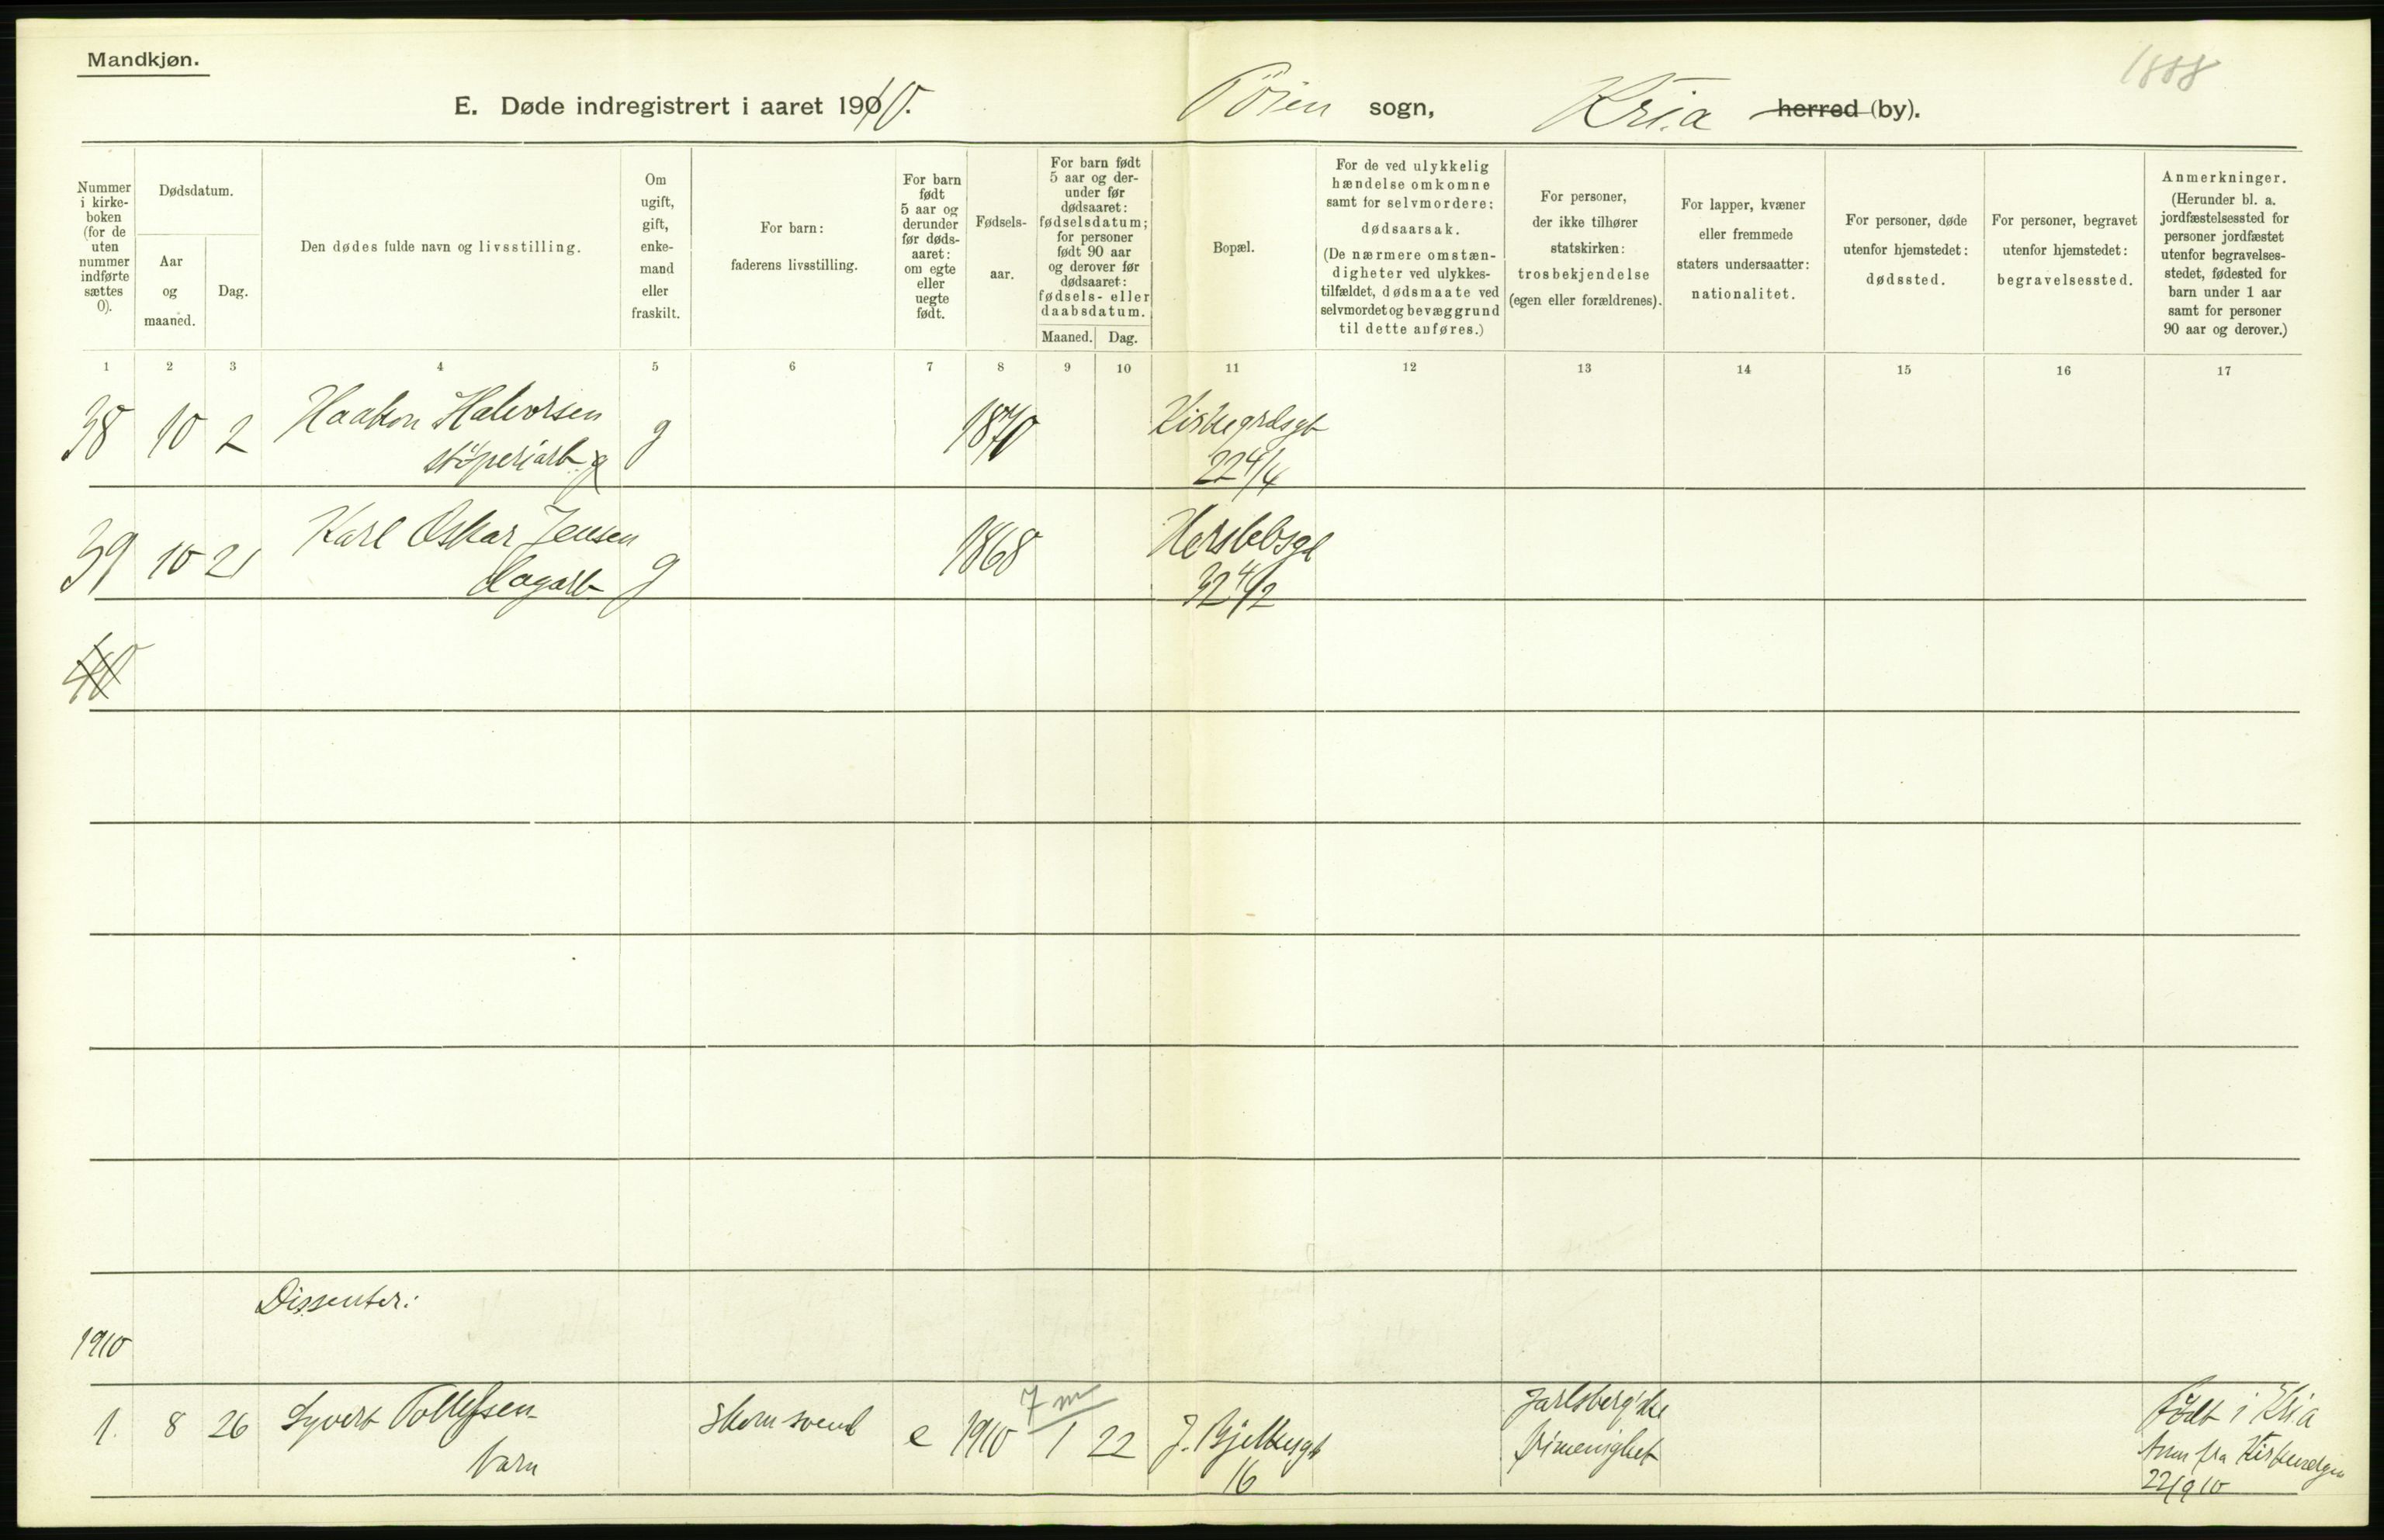 Mandkjøn.
1888
E. Døde indregistrert i aaret 1910. Töien sogn, Kr.ia herred (by).
Nummer i kirkeboken (for de uten nummer indførte sættes 0).
Dødsdatum.
Aar og maaned.
Dag.
Den dødes fulde navn og livsstilling.
Om ugift, gift, enkemand eller fraskilt.
For barn: faderens livsstilling.
For barn født 5 aar og derunder før dødsaaret: om egte eller uegte født.
Fødselsaar.
For barn født 5 aar og derunder før dødsaaret: fødselsdatum; for personer født 90 aar og derover før dødsaaret: fødsels- eller daabsdatum.
Maaned. Dag.
Bopæl.
For de ved ulykkelig hændelse omkomne samt for selvmordere: dødsaarsak. (De nærmere omstændigheter ved ulykkestilfældet, dødsmaate ved selvmordet og bevæggrund til dette anføres.)
For personer, der ikke tilhører statskirken: trosbekjendelse (egen eller forældrenes).
For lapper, kvæner eller fremmede staters undersaatter: nationalitet.
For personer, døde utenfor hjemstedet: dødssted.
For personer, begravet utenfor hjemstedet: begravelsessted.
Anmerkninger. (Herunder bl. a. jordfæstelsessted for personer jordfæstet utenfor begravelsesstedet, fødested for barn under 1 aar samt for personer 90 aar og derover.)
1 2 3 4 5 6 7 8 9 10 11 12 13 14 15 16 17
38 10 2 Haakon Halvorsen g 1870 Kirkegrdsgt
støperiarb. g 22 4/4
39 10 21 Karl Oskar Jensen g 1868 Herslebsgt
Dagarb 32 4/2
40
Dissenter:
1910
7 m
1. 8 26 Syvert Tollefsen Skomsvend e 1910 1 22 J. Bjelkesgt Jarlsberg'ske Født i Kr.ia
barn 16 Frimenighet Anm fra Kirkevergen
22/9 10